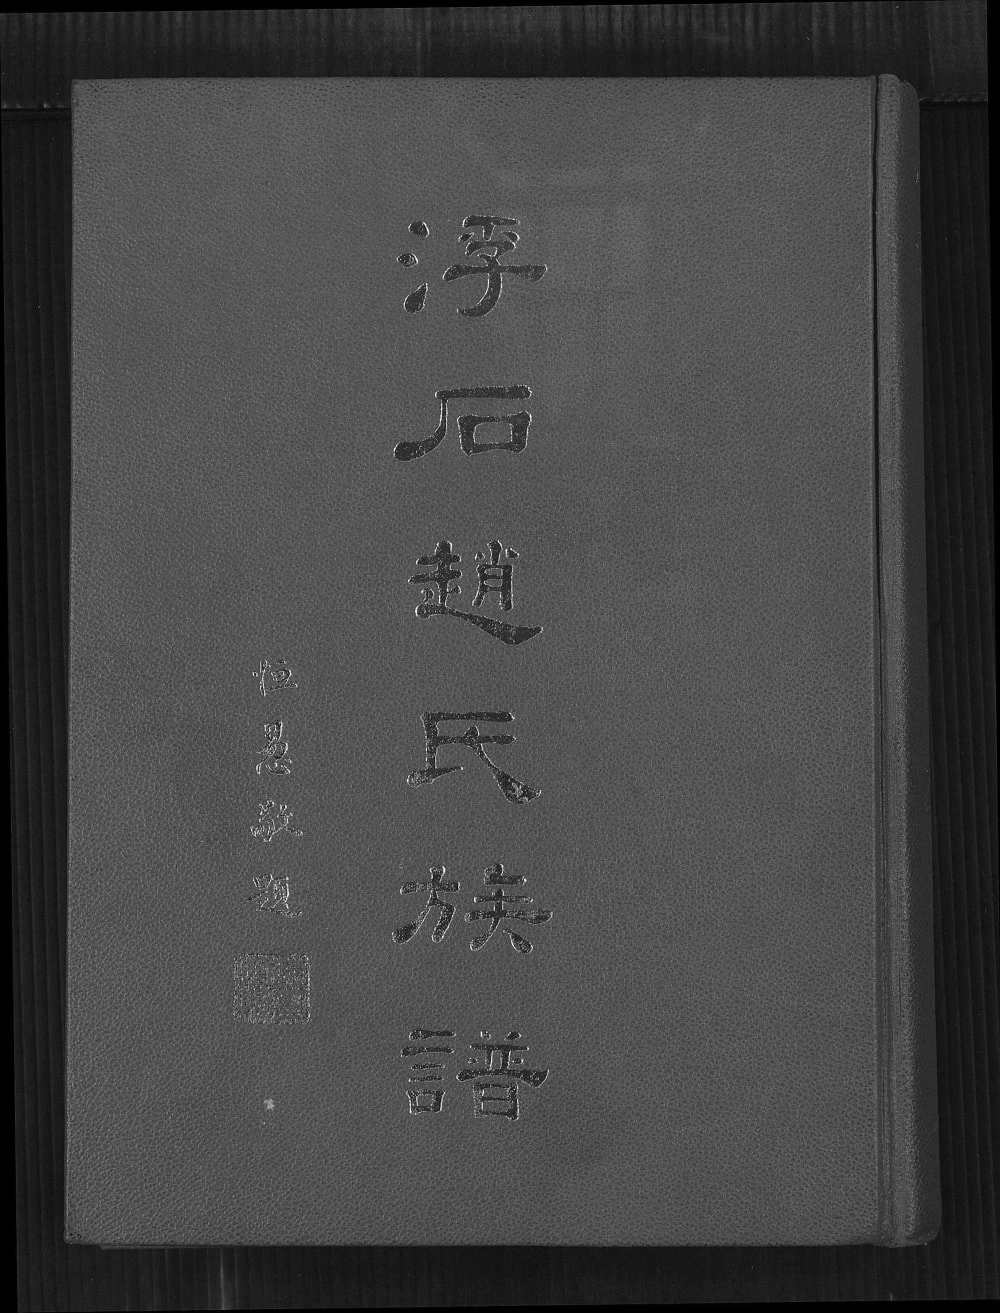 浮石趙氏族譜
恒惖敬題